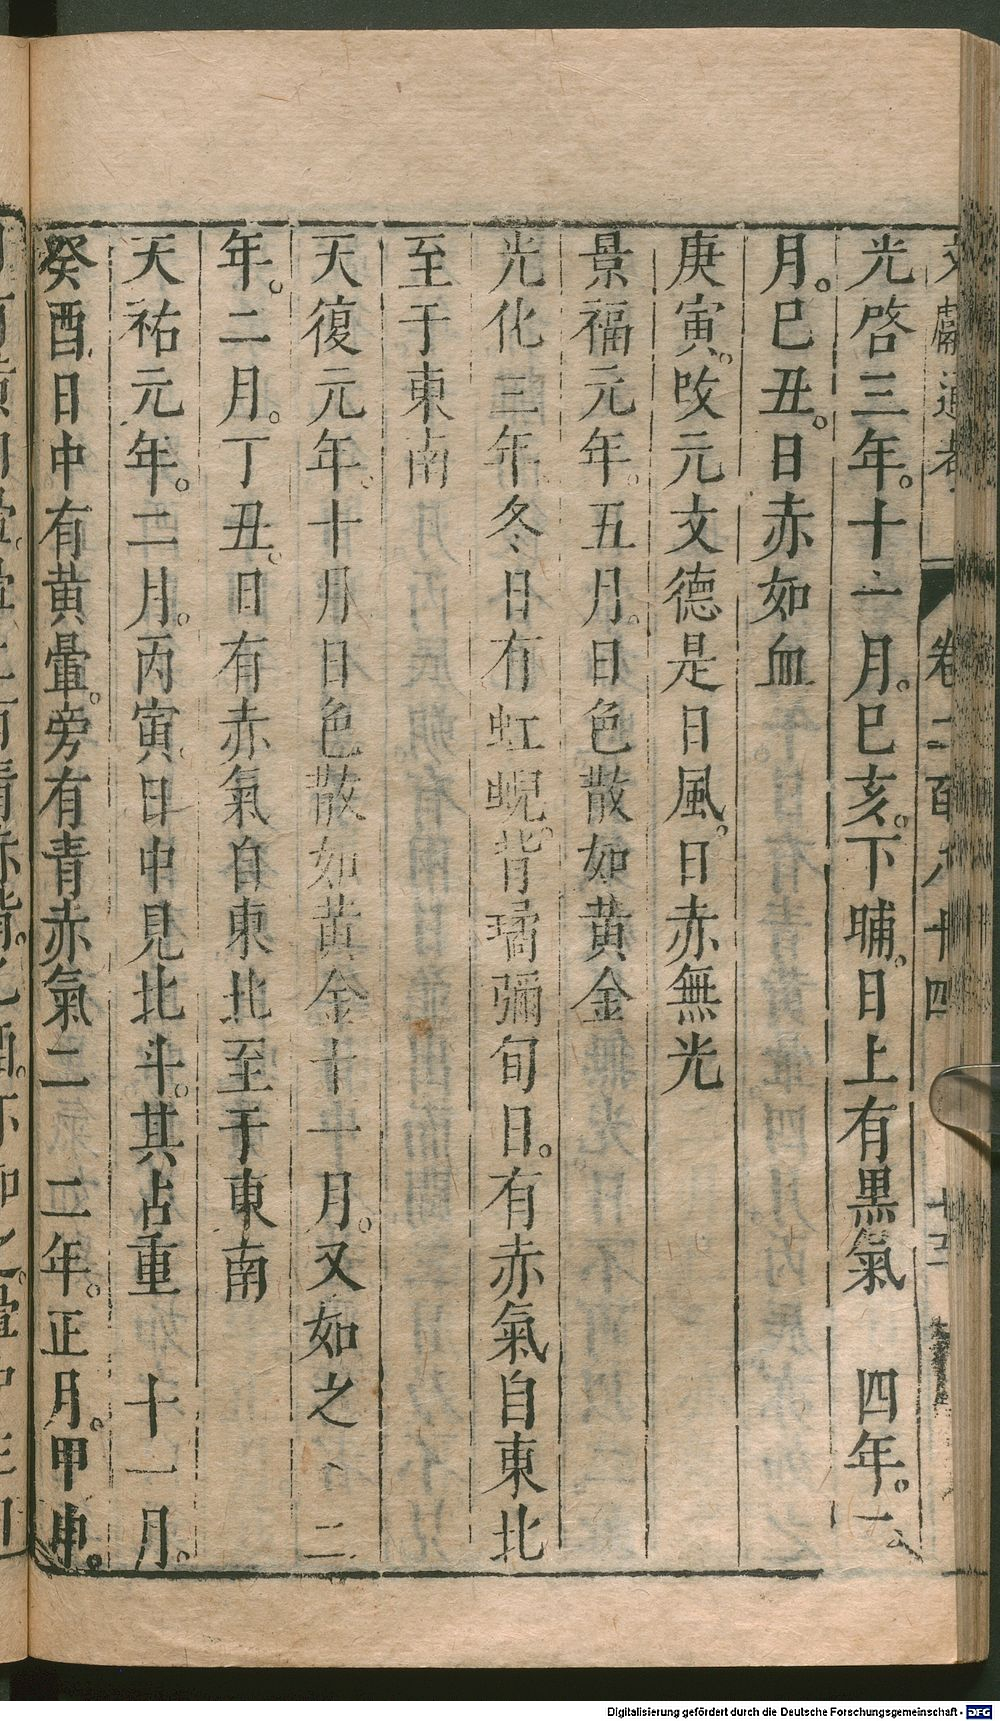 文獻通考 卷二百八十四
光啓三年。十一月。巳亥。下晡。日上有黒氣 四年。二
月。巳丑。日赤如血
庚寅。攺元文德是日風。日赤無光
景福元年。五月。日色散如黄金
光化三年冬日有虹蜺。背璚彌旬日。有赤氣自東北
至于東南
天復元年。十月日色散如黄金十一月。又如之 二
年。二月。丁丑。日有赤氣自東北至于東南
天祐元年。二月。丙寅日中見北斗。其占重 十一月。
癸酉日中有黄暈。旁有青赤氣二 二年。正月。甲申。
Digitalisierung gefördert durch die Deutsche Forschungsgemeinschaft - DFG